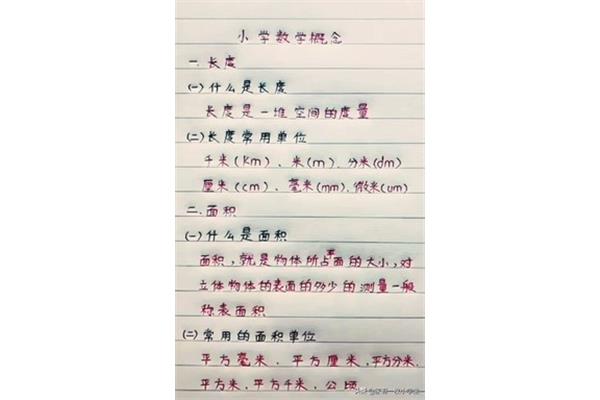 小学数学概念
一.长度
(一)什么是长度
长度是一堆空间的度量
(二)长度常用单位
千米(km)、米(m)、分米(dm)
厘米(cm)、毫米(mm)、微米(um)
二.面积
(一)什么是面积
面积,就是物体所占平面的大小,对
立体物体的表面的多少的测量一般
称表面积
(二)常用的面积单位
平方毫米.平方厘米.平方分米.
平方米.平方千米.公顷